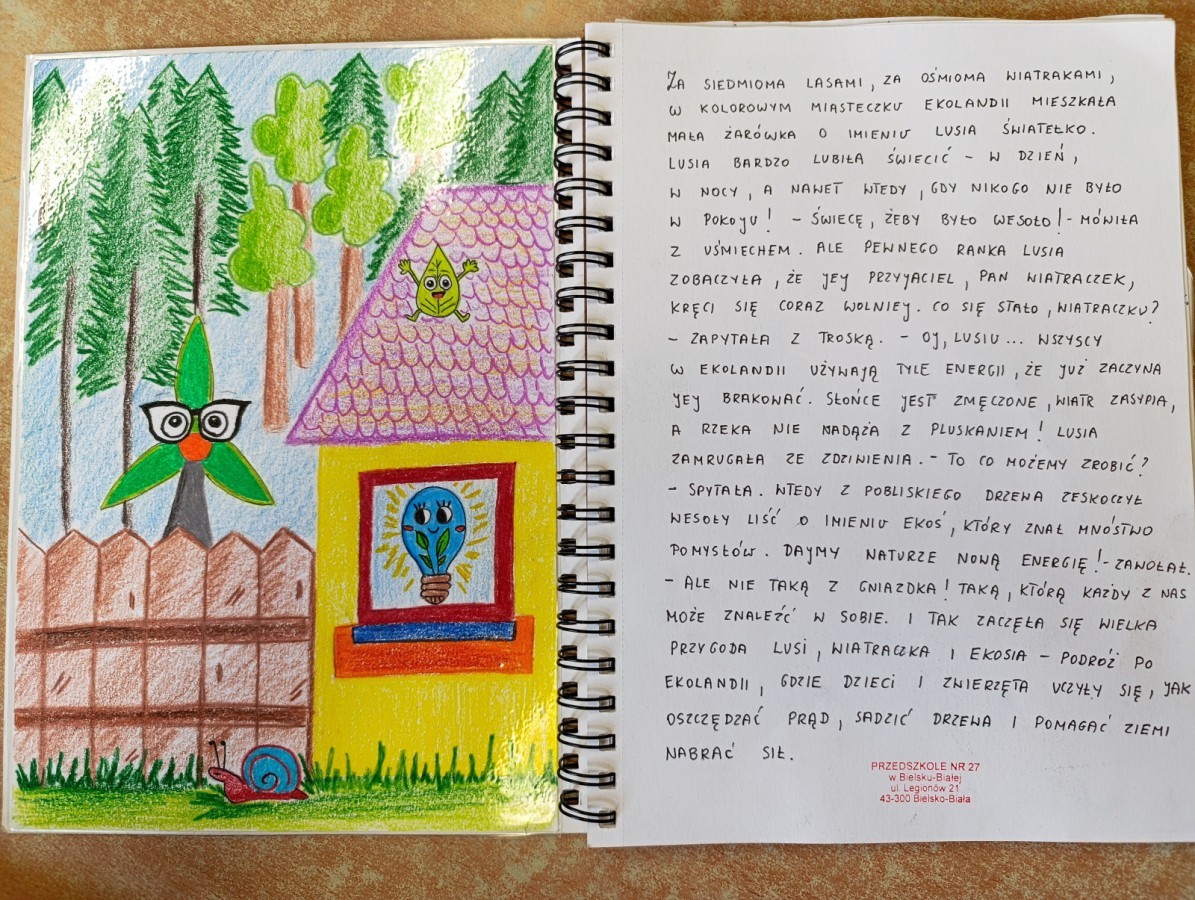 ZA SIEDMIOMA LASAMI, ZA OŚMIOMA WIATRAKAMI,
W KOLOROWYM MIASTECZKU EKOLANDII MIESZKAŁA
MAŁA ŻARÓWKA O IMIENIU LUSIA ŚWIATEŁKO.
LUSIA BARDZO LUBIŁA ŚWIECIĆ - W DZIEŃ,
W NOCY, A NAWET WTEDY, GDY NIKOGO NIE BYŁO
W POKOJU! - ŚWIECĘ, ŻEBY BYŁO WESOŁO! - MÓWIŁA
Z UŚMIECHEM. ALE PEWNEGO RANKA LUSIA
ZOBACZYŁA, ŻE JEJ PRZYJACIEL, PAN WIATRACZEK,
KRĘCI SIĘ CORAZ WOLNIEJ. CO SIĘ STAŁO, WIATRACZKU?
- ZAPYTAŁA Z TROSKĄ. - OJ, LUSIU... WSZYSCY
W EKOLANDII UŻYWAJĄ TYLE ENERGII, ŻE JUŻ ZACZYNA
JEJ BRAKOWAĆ. SŁOŃCE JEST ZMĘCZONE, WIATR ZASYPIA,
A RZEKA NIE NADĄŻA Z PLUSKANIEM! LUSIA
ZAMRUGAŁA ZE ZDZIWIENIA. - TO CO MOŻEMY ZROBIĆ?
- SPYTAŁA. WTEDY Z POBLISKIEGO DRZEWA ZESKOCZYŁ
WESOŁY LIŚĆ O IMIENIU EKOŚ, KTÓRY ZNAŁ MNÓSTWO
POMYSŁÓW. DAJMY NATURZE NOWĄ ENERGIĘ! - ZAWOŁAŁ.
- ALE NIE TAKĄ Z GNIAZDKA! TAKĄ, KTÓRĄ KAŻDY Z NAS
MOŻE ZNALEŹĆ W SOBIE. I TAK ZACZĘŁA SIĘ WIELKA
PRZYGODA LUSI, WIATRACZKA I EKOSIA - PODRÓŻ PO
EKOLANDII, GDZIE DZIECI I ZWIERZĘTA UCZYŁY SIĘ, JAK
OSZCZĘDZAĆ PRĄD, SADZIĆ DRZEWA I POMAGAĆ ZIEMI
NABRAĆ SIŁ.
PRZEDSZKOLE NR 27
w Bielsku-Białej
ul. Legionów 21
43-300 Bielsko-Biała